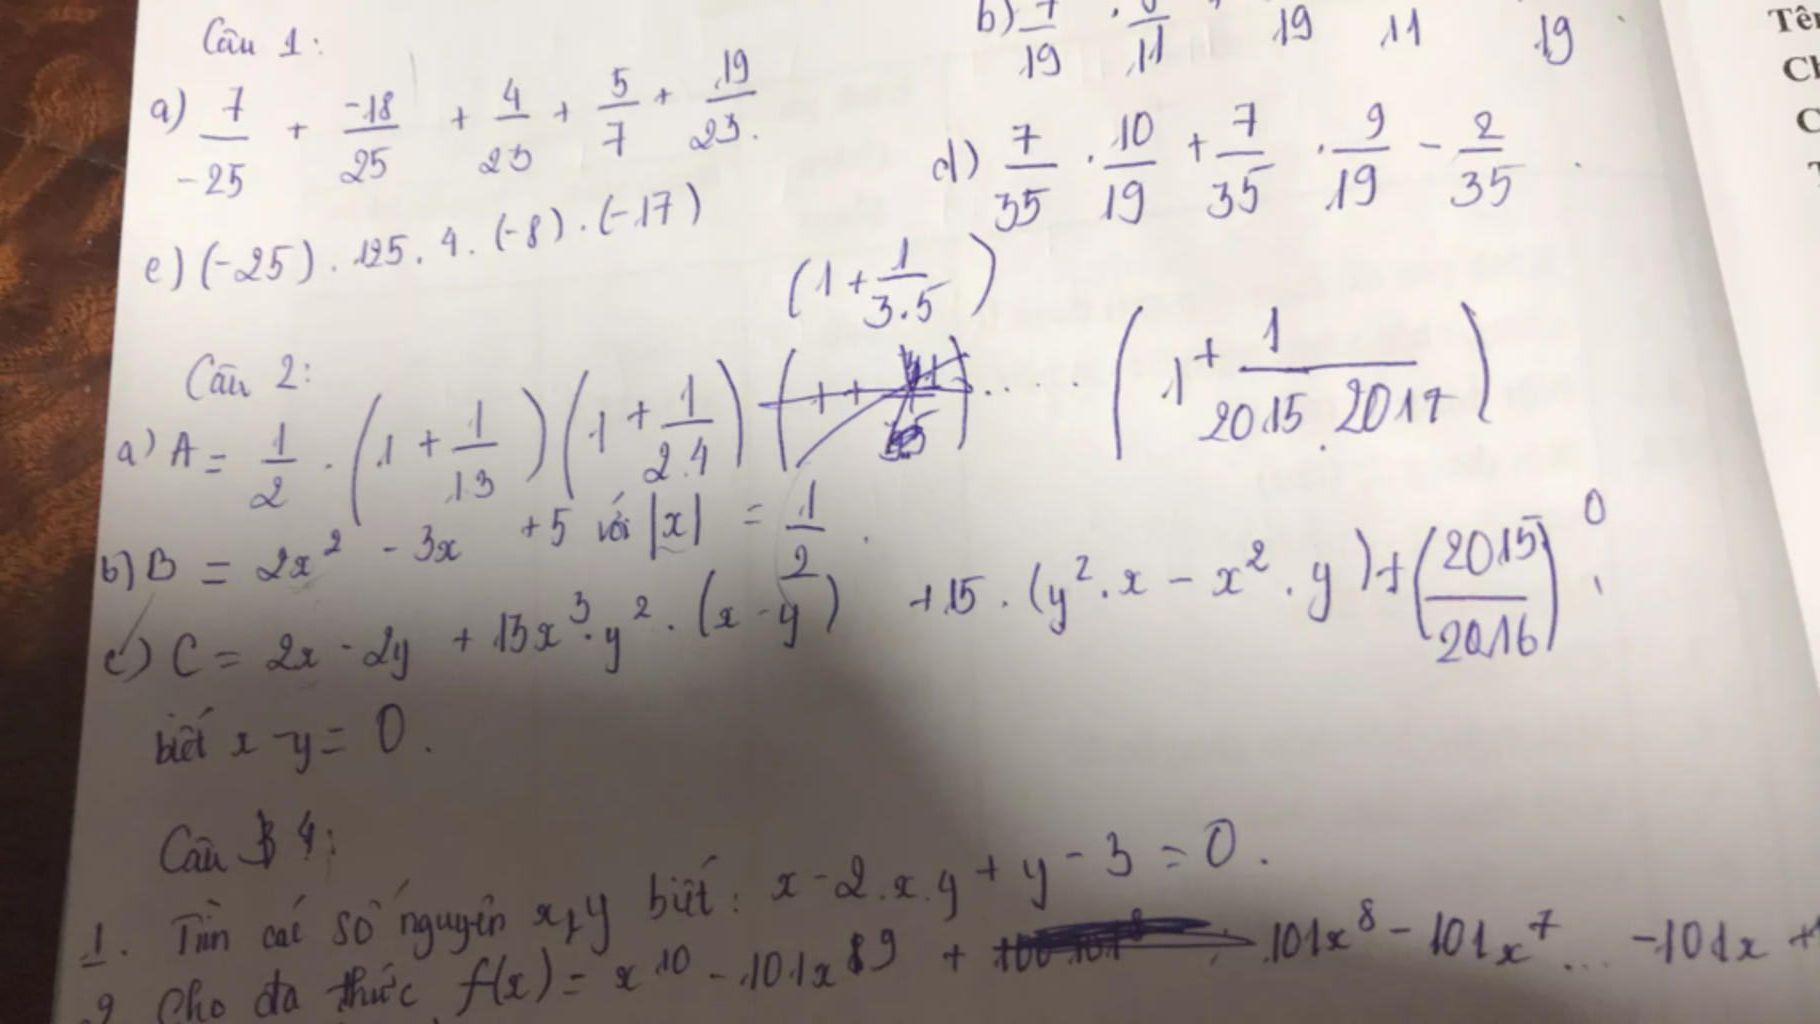 Câu 1:
a) 7/-25 + -18/25 + 4/23 + 5/7 + 19/23.
b) 7/19 . 8/11 19 11 19
d) 7/35 . 10/19 + 7/35 . 9/19 - 2/35
e) (-25) . 125 . 4 . (-8) . (-17)
Câu 2:
(1 + 1/3.5)
a) A = 1/2 . (1 + 1/1.3) (1 + 1/2.4) ..... (1 + 1/2015.2017)
b) B = 2x² - 3x + 5 với |x| = 1/2.
c) C = 2x - 2y + 13x³.y².(x - y) + 15.(y².x - x².y) + (2015/2016)⁰
biết x - y = 0.
Câu 4:
1. Tìm các số nguyên x, y biết: x - 2.x.y + y - 3 = 0.
2 Cho đa thức f(x) = x¹⁰ - 101x⁹ + 101x⁸ - 101x⁷ ... - 101x +
Tên
Ch
C